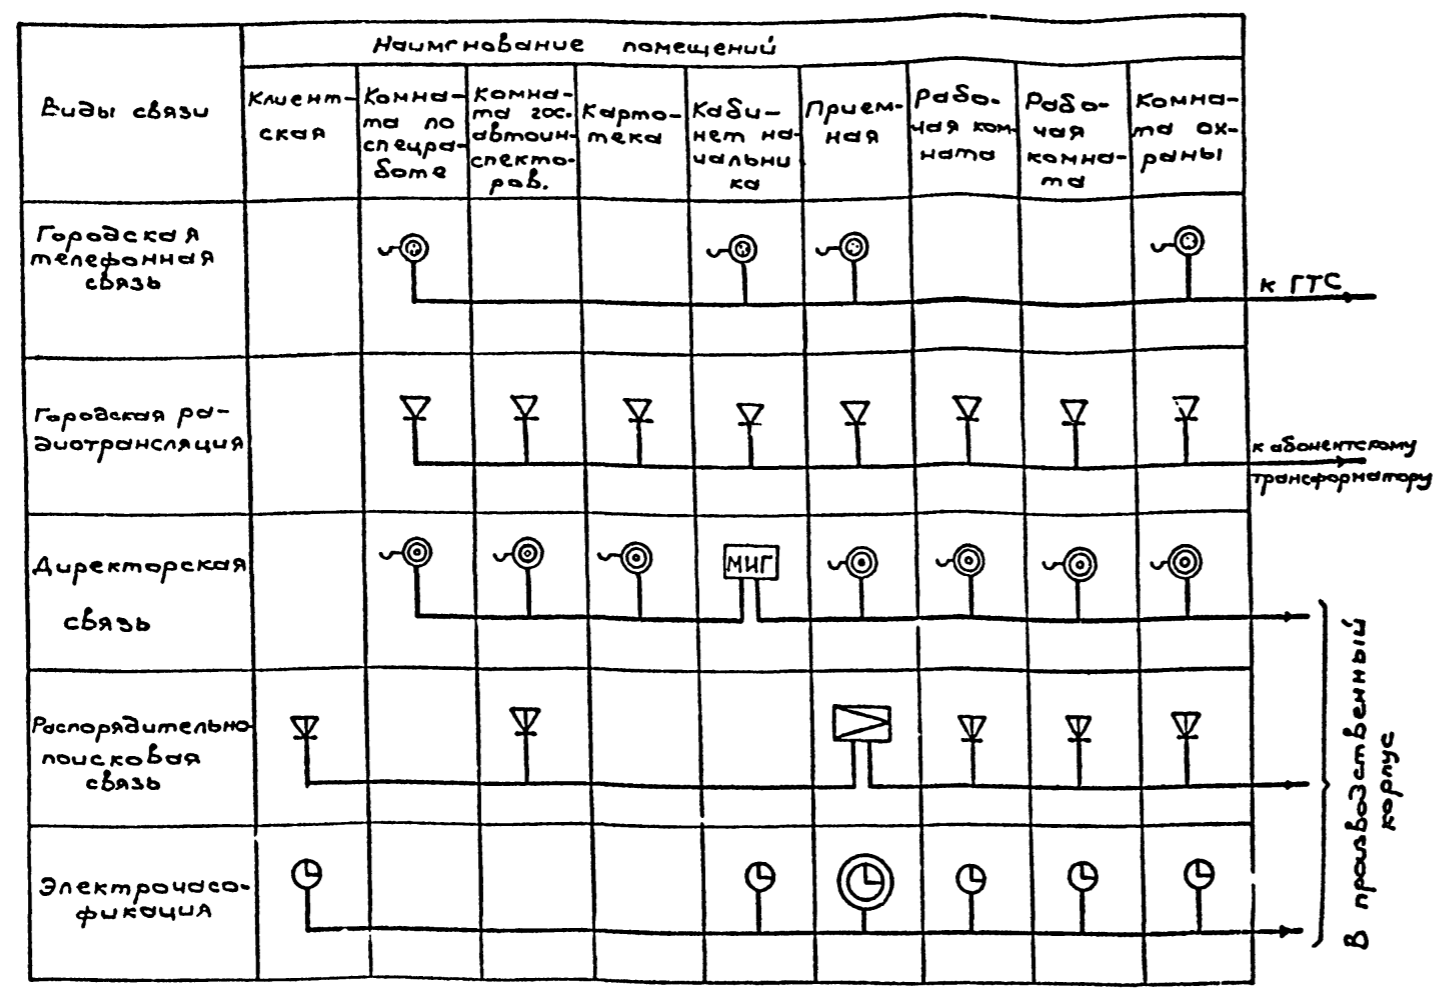 Наименование помещений
Виды связи
Клиент-
ская
Комна-
та по
спецра-
боте
Комна-
та гос.
автоин-
спекто-
ров.
Карто-
тека
Каби-
нет на-
чальни
ка
Прием-
ная
Рабо-
чая ком-
ната
Рабо-
чая
комна-
та
Комна-
та ох-
раны
Городская
телефонная
связь
к ГТС
Городская ра-
диотрансляция
к абонентскому
трансформатору
Директорская
связь
МИГ
Распорядительно-
поисковая
связь
Электрочасо-
фикация
В производственный
корпус